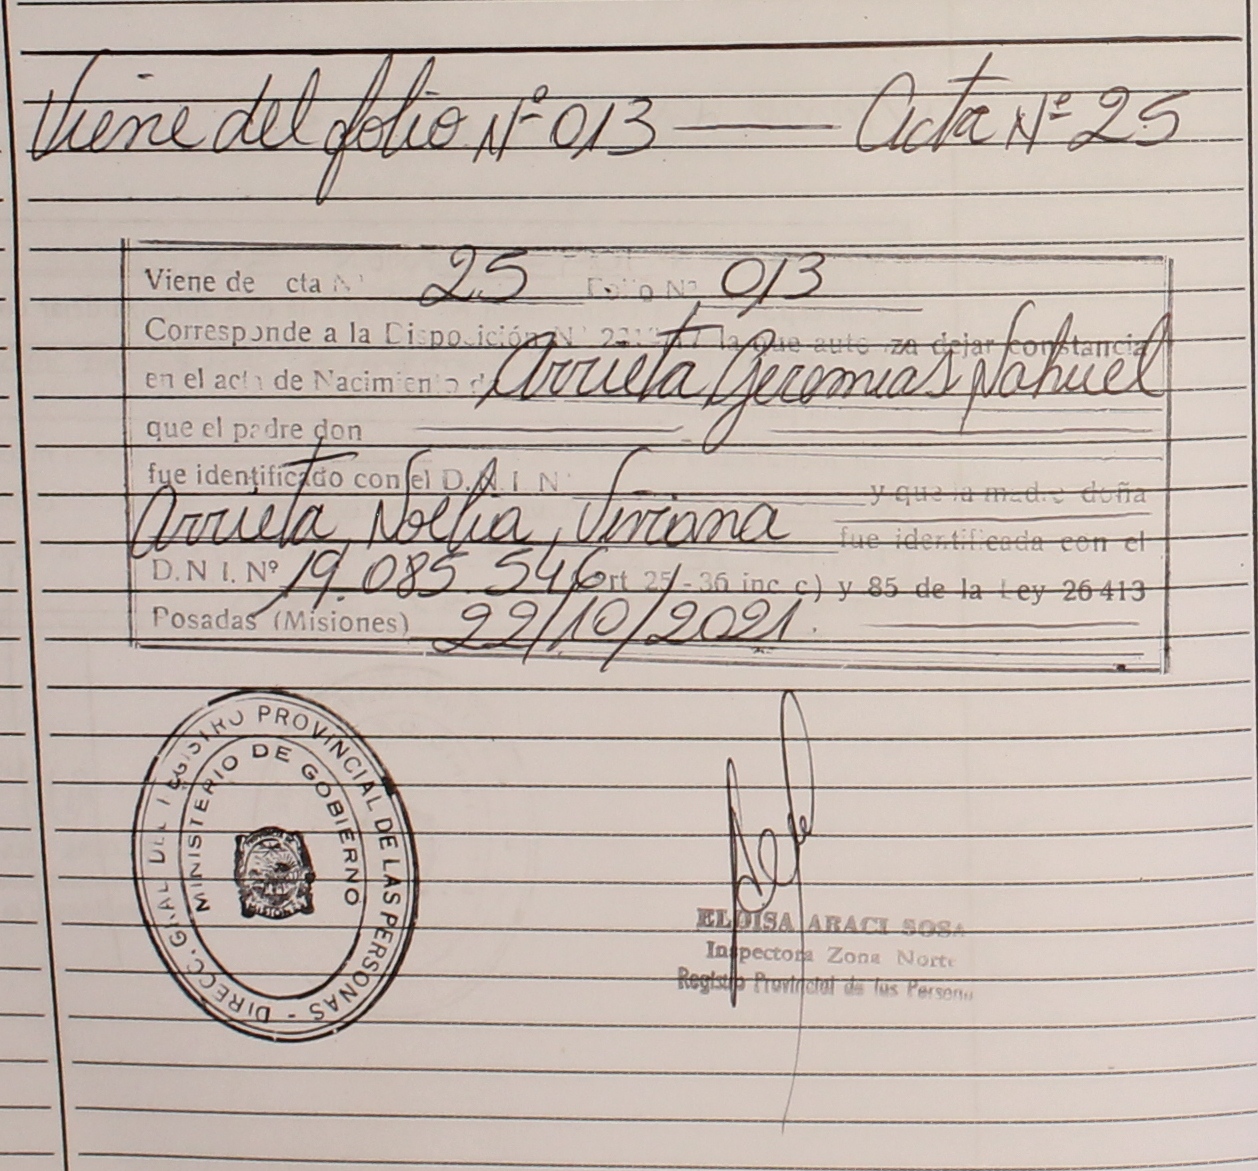 Viene del folio Nº 013 —— Acta Nº 25
Viene de cta N° 25 Folio Nº 013
Corresponde a la Disposición N° la que autoriza dejar constancia
en el acta de Nacimiento d Arrieta Geremias Nahuel
que el padre don
fue identificado con el D.N.I. N° y que la madre doña
Arrieta, Noelia, Viviana fue identificada con el
D.N.I. Nº 19.085.546 Art 25 - 36 inc c) y 85 de la Ley 26413
Posadas (Misiones) 22/10/2021.
DIRECC. GRAL DEL REGISTRO PROVINCIAL DE LAS PERSONAS -
MINISTERIO DE GOBIERNO
MISIONES
ELOISA ARACI SOSA
Inspectora Zona Norte
Registro Provincial de las Persona